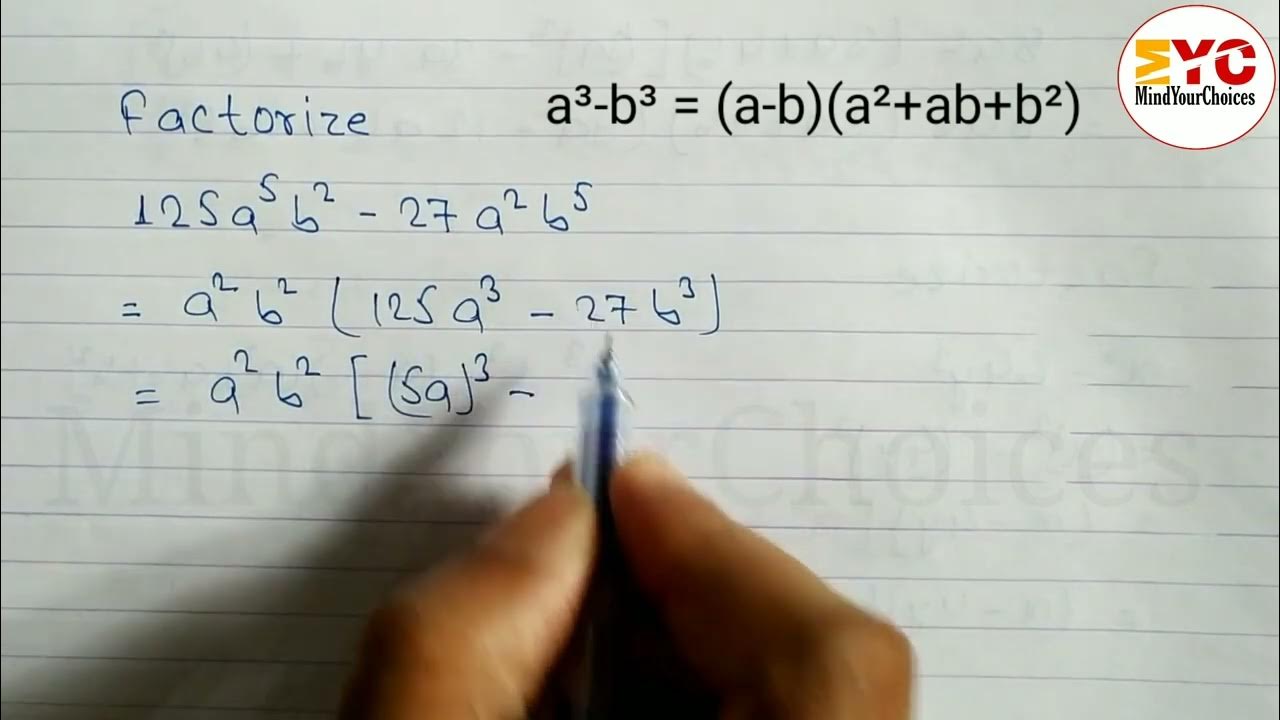 MYC
MindYourChoices
Factorize
a³-b³ = (a-b)(a²+ab+b²)
125a⁵b² - 27a²b⁵
= a²b² (125a³ - 27b³)
= a²b² [(5a)³ -
MindYourChoices